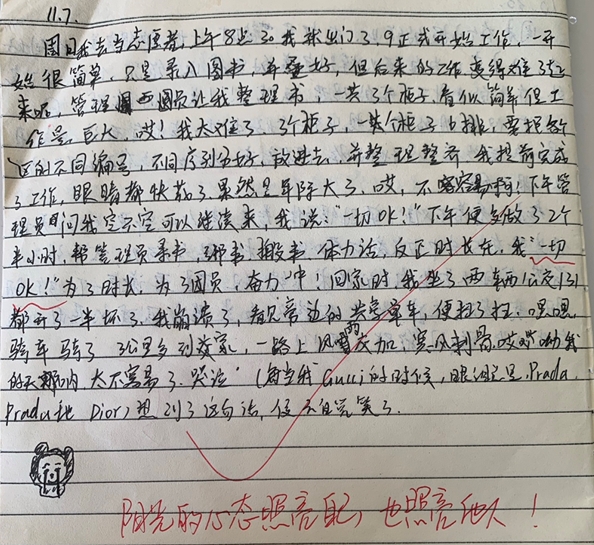 11.7.
周日我去当志愿者,上午8点30我就出门了,9正式开始工作,一开
始很简单,只是录入图书,并叠好,但后来的工作变得难了起
来呢,管理图员让我整理书,一共3个柜子,看似简单但工
作量巨大,哎!我太难了,3个柜子,一共个柜子6排,要把各个
区的不同编号,不同序列分好,放进去,并整理整齐,我提前完成
了工作,眼睛都快花了果然是年际大了,哎,不容易啊!下午管
理员问我空不空可以继续来,我说:"一切OK!"下午便多做了2个
半小时,帮管理员弄书,绑书,搬书,体力活,反正时长在,我"一切
OK!"为了时长,为了团员,奋力冲!回家时,我坐了两辆公交131
都开了一半坏了,我崩溃了,看见旁边的共享单车,便扫了扫,嘿嘿,
骑车骑了3公里多到家,一路上风雪交加,寒风刺骨,哎哟呦我
的天那呐,太不容易了。哭泣(每当我Gucci的时候,眼泪就是Prada
Prada地Dior)想到了这句话,便不自觉笑了。
阳光的心态照亮自己,也照亮他人!